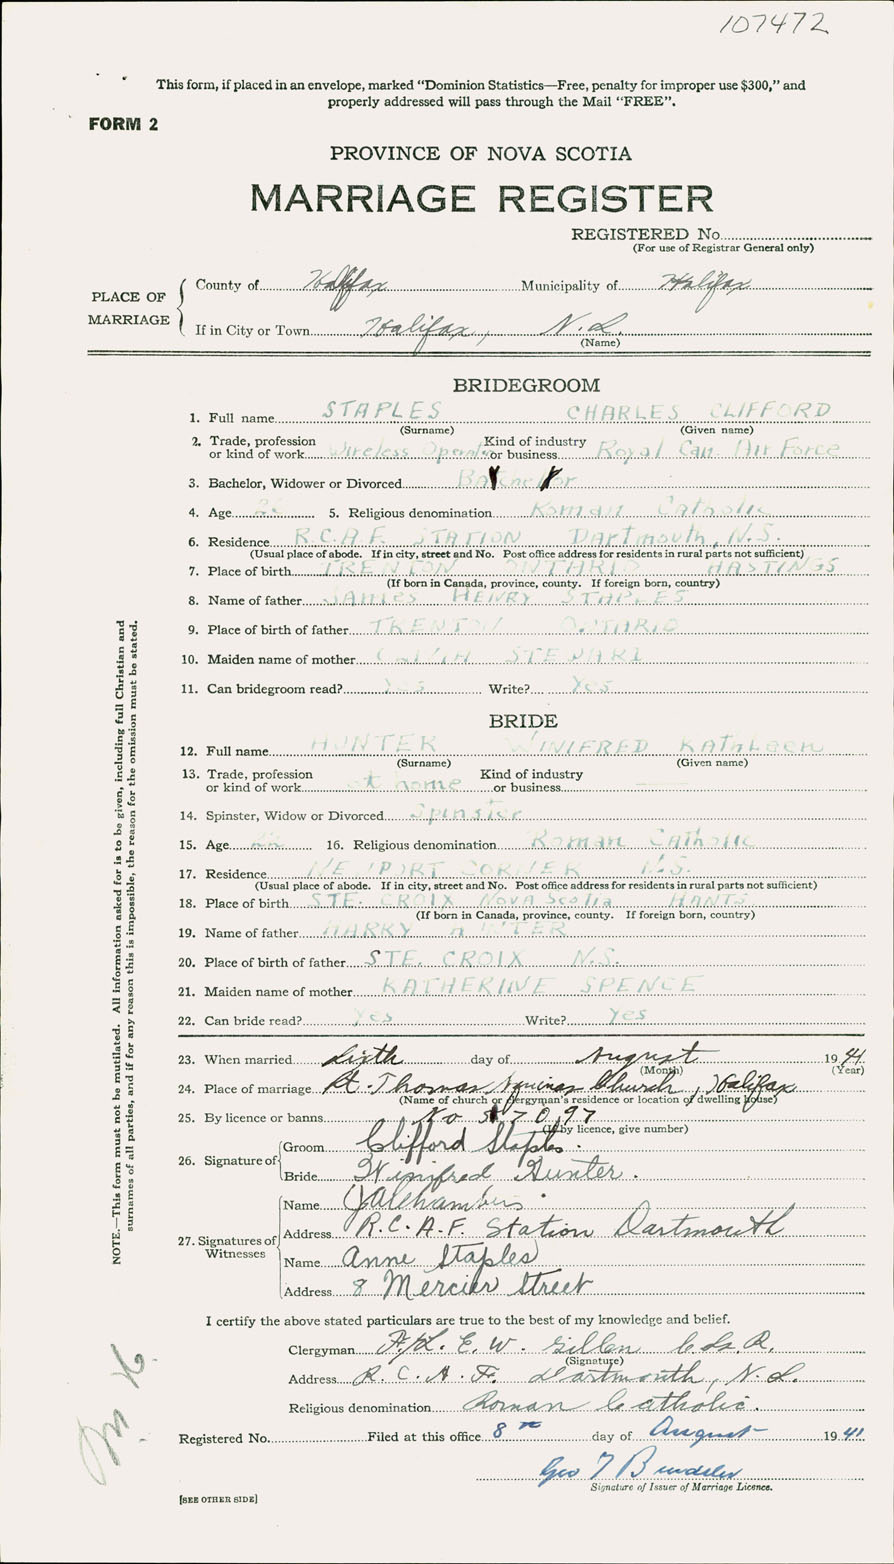 107472
This form, if placed in an envelope, marked “Dominion Statistics—Free, penalty for improper use $300,” and
properly addressed will pass through the Mail “FREE”.
FORM 2
PROVINCE OF NOVA SCOTIA
MARRIAGE REGISTER
REGISTERED No.
(For use of Registrar General only)
PLACE OF MARRIAGE
County of Halifax Municipality of Halifax
If in City or Town Halifax, N.S.
(Name)
BRIDEGROOM
1. Full name STAPLES CHARLES CLIFFORD
(Surname) (Given name)
2. Trade, profession or kind of work Wireless Kind of industry or business Royal Can. Air Force
3. Bachelor, Widower or Divorced Batchelor
4. Age 5. Religious denomination Roman Catholic
6. Residence R.C.A.F. STATION Dartmouth, N.S.
(Usual place of abode. If in city, street and No. Post office address for residents in rural parts not sufficient)
7. Place of birth TRENTON ONTARIO HASTINGS
(If born in Canada, province, county. If foreign born, country)
8. Name of father James HENRY STAPLES
9. Place of birth of father TRENTON ONTARIO
10. Maiden name of mother STEWART
11. Can bridegroom read? Yes Write? Yes
BRIDE
12. Full name HUNTER WINIFRED KATHLEEN
(Surname) (Given name)
13. Trade, profession or kind of work at home Kind of industry or business
14. Spinster, Widow or Divorced Spinster
15. Age 16. Religious denomination Roman Catholic
17. Residence NEWPORT CORNER N.S.
(Usual place of abode. If in city, street and No. Post office address for residents in rural parts not sufficient)
18. Place of birth STE. CROIX Nova Scotia HANTS
(If born in Canada, province, county. If foreign born, country)
19. Name of father HARRY HUNTER
20. Place of birth of father STE. CROIX N.S.
21. Maiden name of mother KATHERINE SPENCE
22. Can bride read? Yes Write? Yes
23. When married Sixth day of August 1941
(Month) (Year)
24. Place of marriage St. Thomas Aquinas Church, Halifax
(Name of church or clergyman's residence or location of dwelling house)
25. By licence or banns No 57097
(If by licence, give number)
26. Signature of
Groom Clifford Staples.
Bride Winifred Hunter.
27. Signatures of Witnesses
Name
Address R.C.A.F. Station Dartmouth
Name Anne Staples
Address 8 Mercier Street
I certify the above stated particulars are true to the best of my knowledge and belief.
Clergyman F/L. E. W. Gillen
(Signature)
Address R. C. A. F. Dartmouth, N.S.
Religious denomination Roman Catholic.
Registered No. Filed at this office 8th day of August 1941
Geo T
Signature of Issuer of Marriage Licence.
[SEE OTHER SIDE]
NOTE.—This form must not be mutilated. All information asked for is to be given, including full Christian and
surnames of all parties, and if for any reason this is impossible, the reason for the omission must be stated.